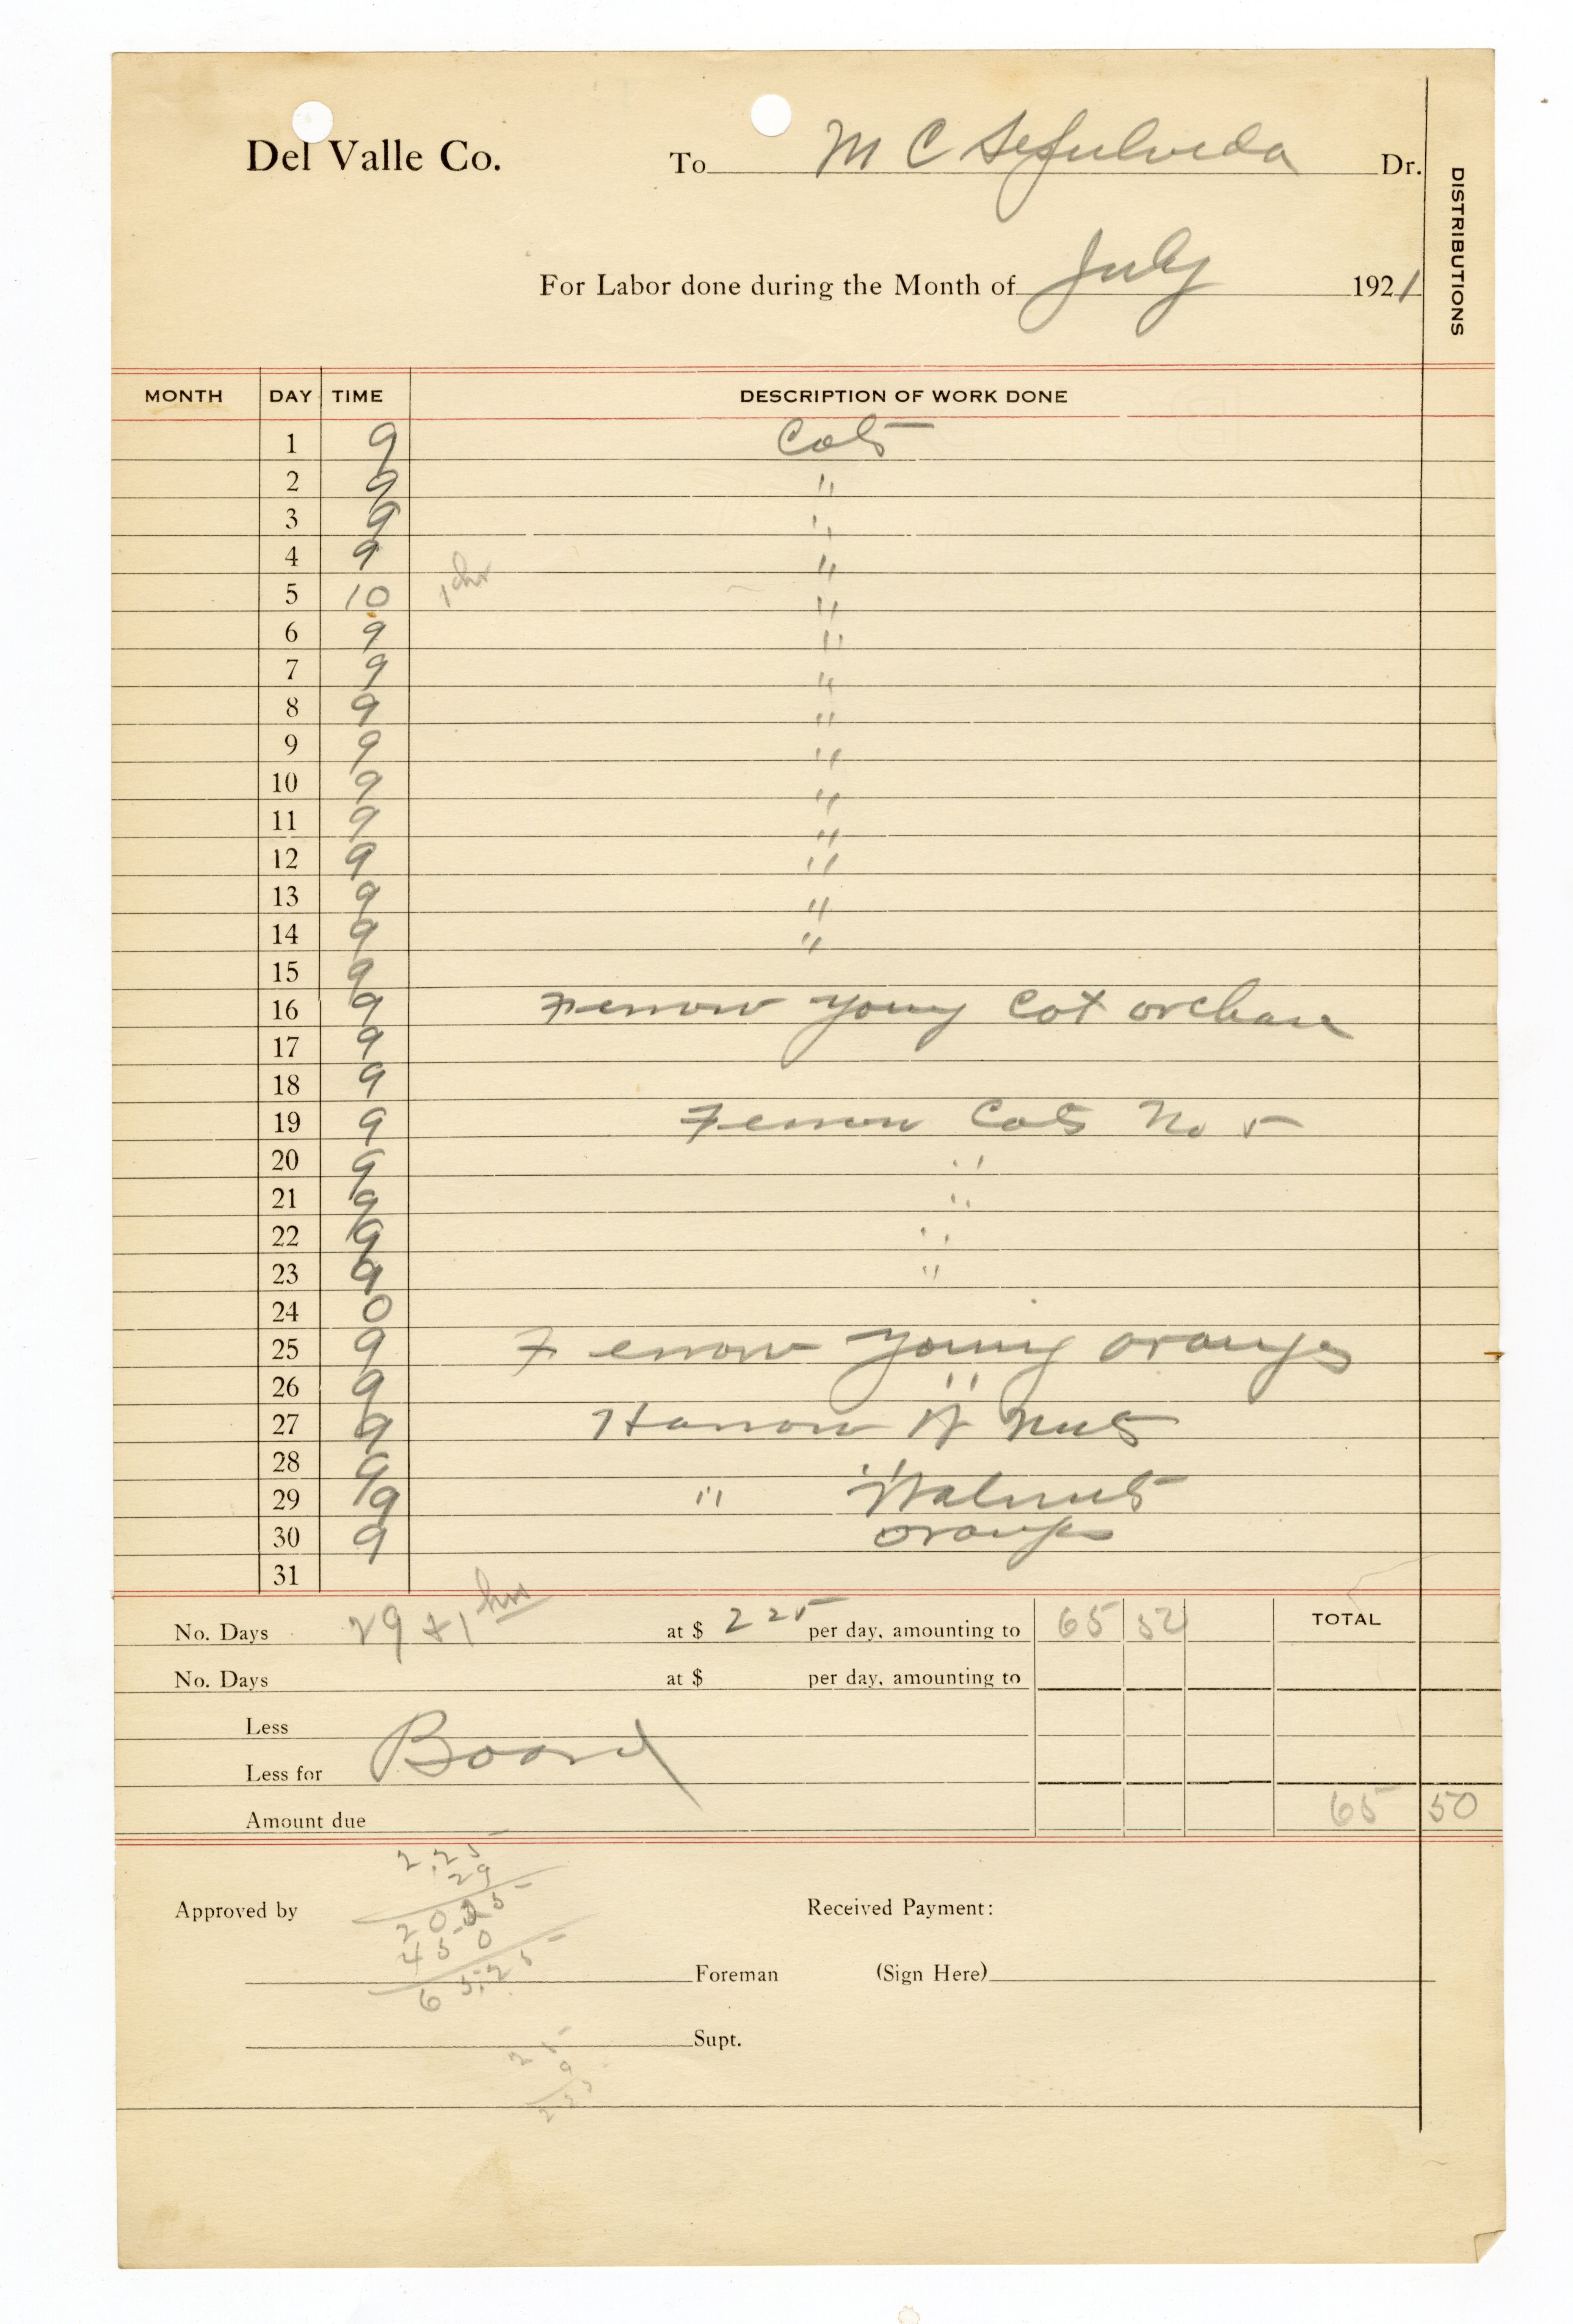 Del Valle Co. To M C Sepulveda Dr.
DISTRIBUTIONS
For Labor done during the Month of July 1921
MONTH DAY TIME DESCRIPTION OF WORK DONE
1 9 Cots
2 9 "
3 9 "
4 9 "
5 10 1 hr "
6 9 "
7 9 "
8 9 "
9 9 "
10 9 "
11 9 "
12 9 "
13 9 "
14 9 "
15 9
16 9 Ferrow young Cot orchard
17 9
18 9
19 9 Ferrow Cots No 5
20 9 "
21 9 "
22 9 "
23 9 "
24 0
25 9 Ferrow young oranges
26 9 "
27 9 Harrow W Nuts
28 9 "
29 9 " Walnuts
30 9 oranges
31
No. Days 29 + 1 hrs at $ 2 25 per day, amounting to 65 52 TOTAL
No. Days at $ per day, amounting to
Less
Less for Board
Amount due 65 50
2.25
29
Approved by 2025 Received Payment:
450
Foreman (Sign Here)
65.25
Supt.
25
9
225